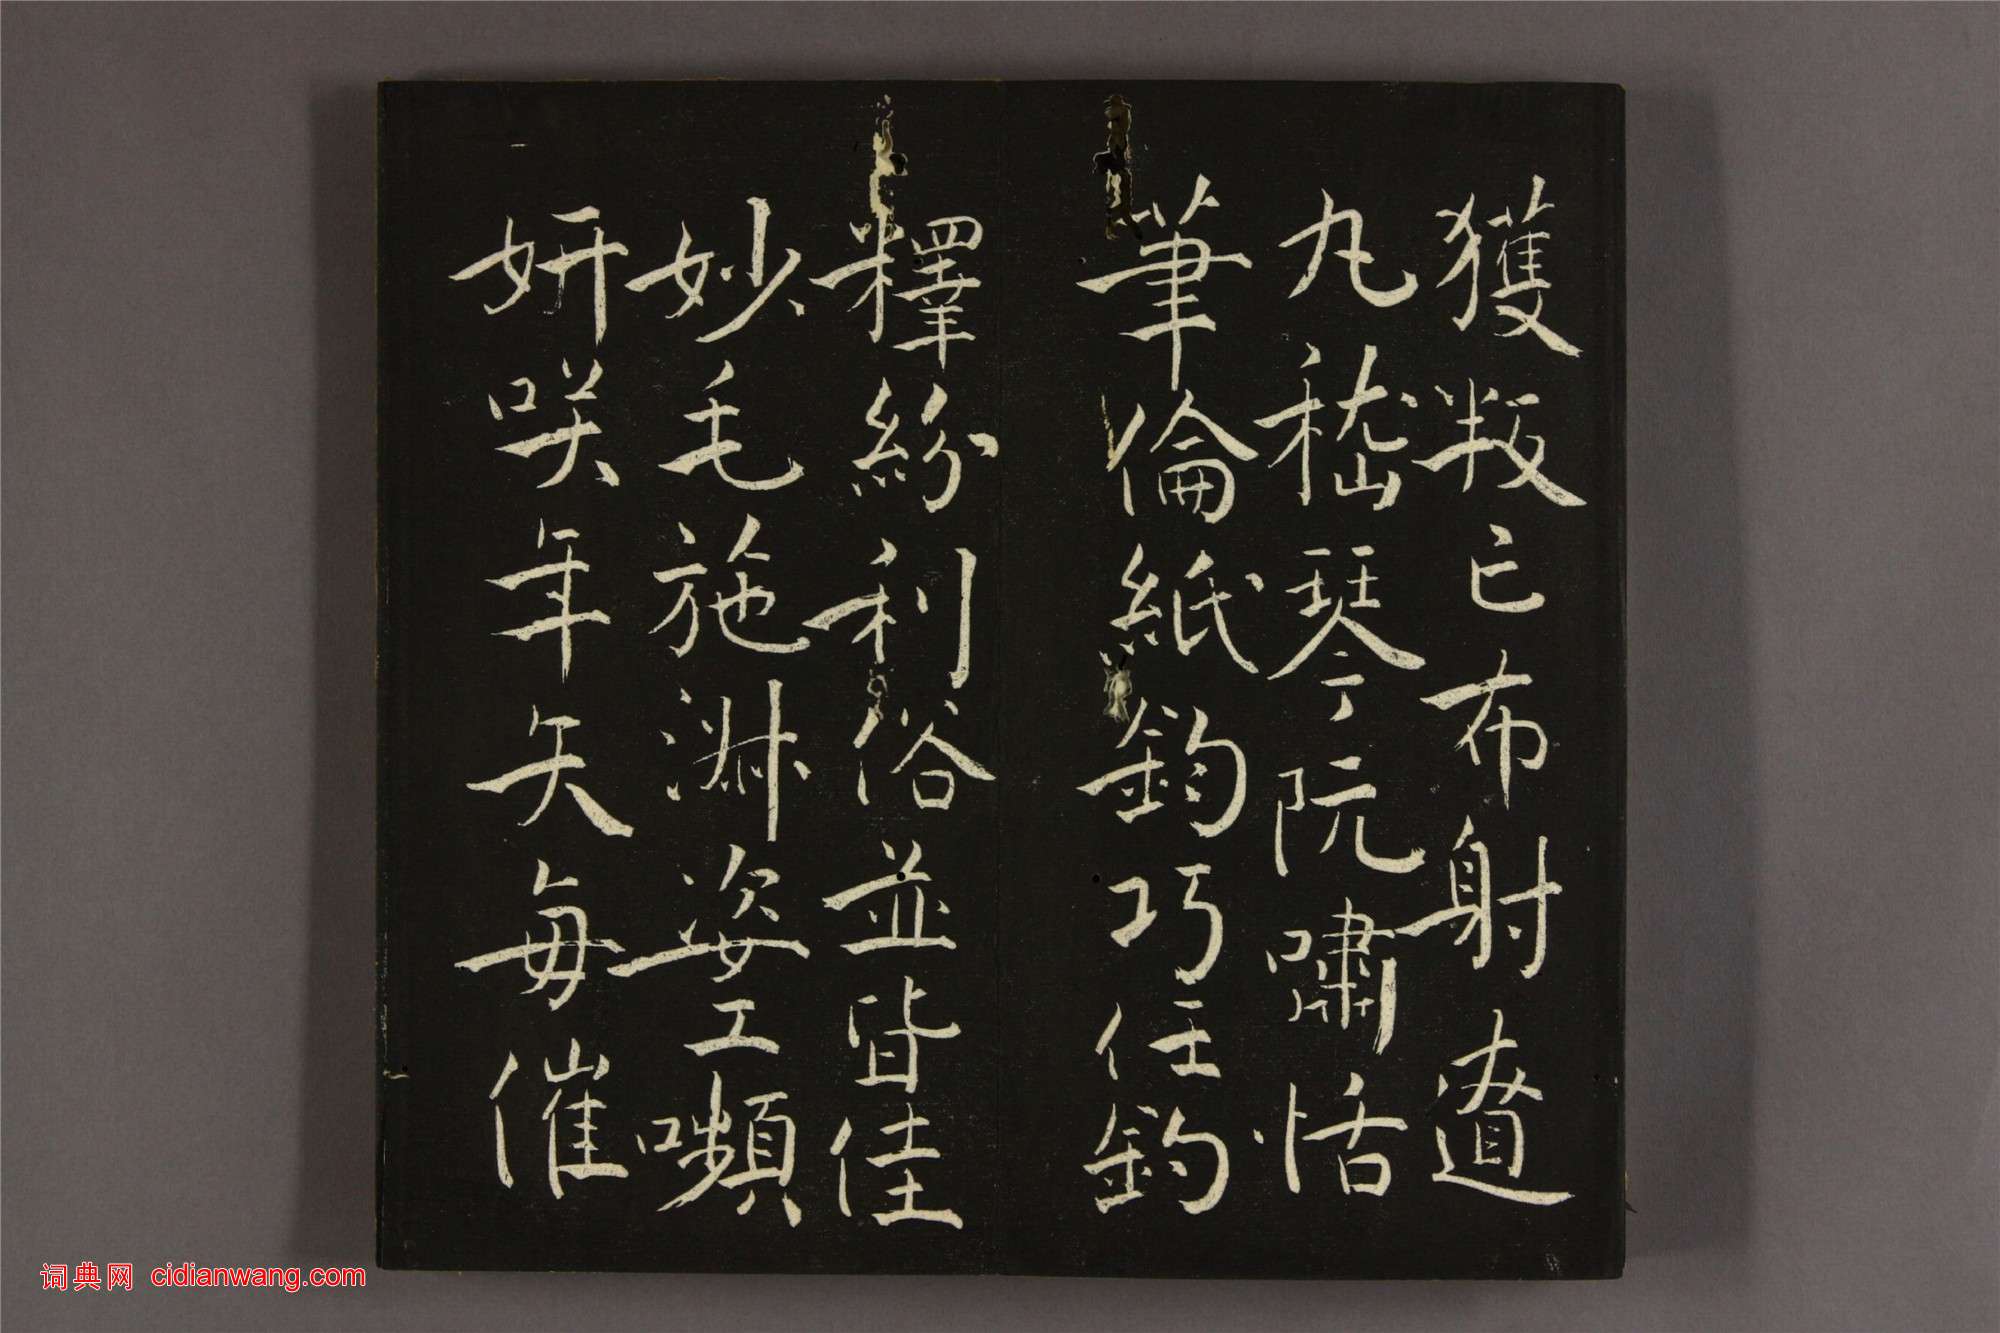 獲叛亡布射遼
丸嵇琴阮嘯恬
筆倫紙鈞巧任釣
釋紛利俗並皆佳
妙毛施淑姿工嚬
妍咲年矢每催
词典网 cidianwang.com